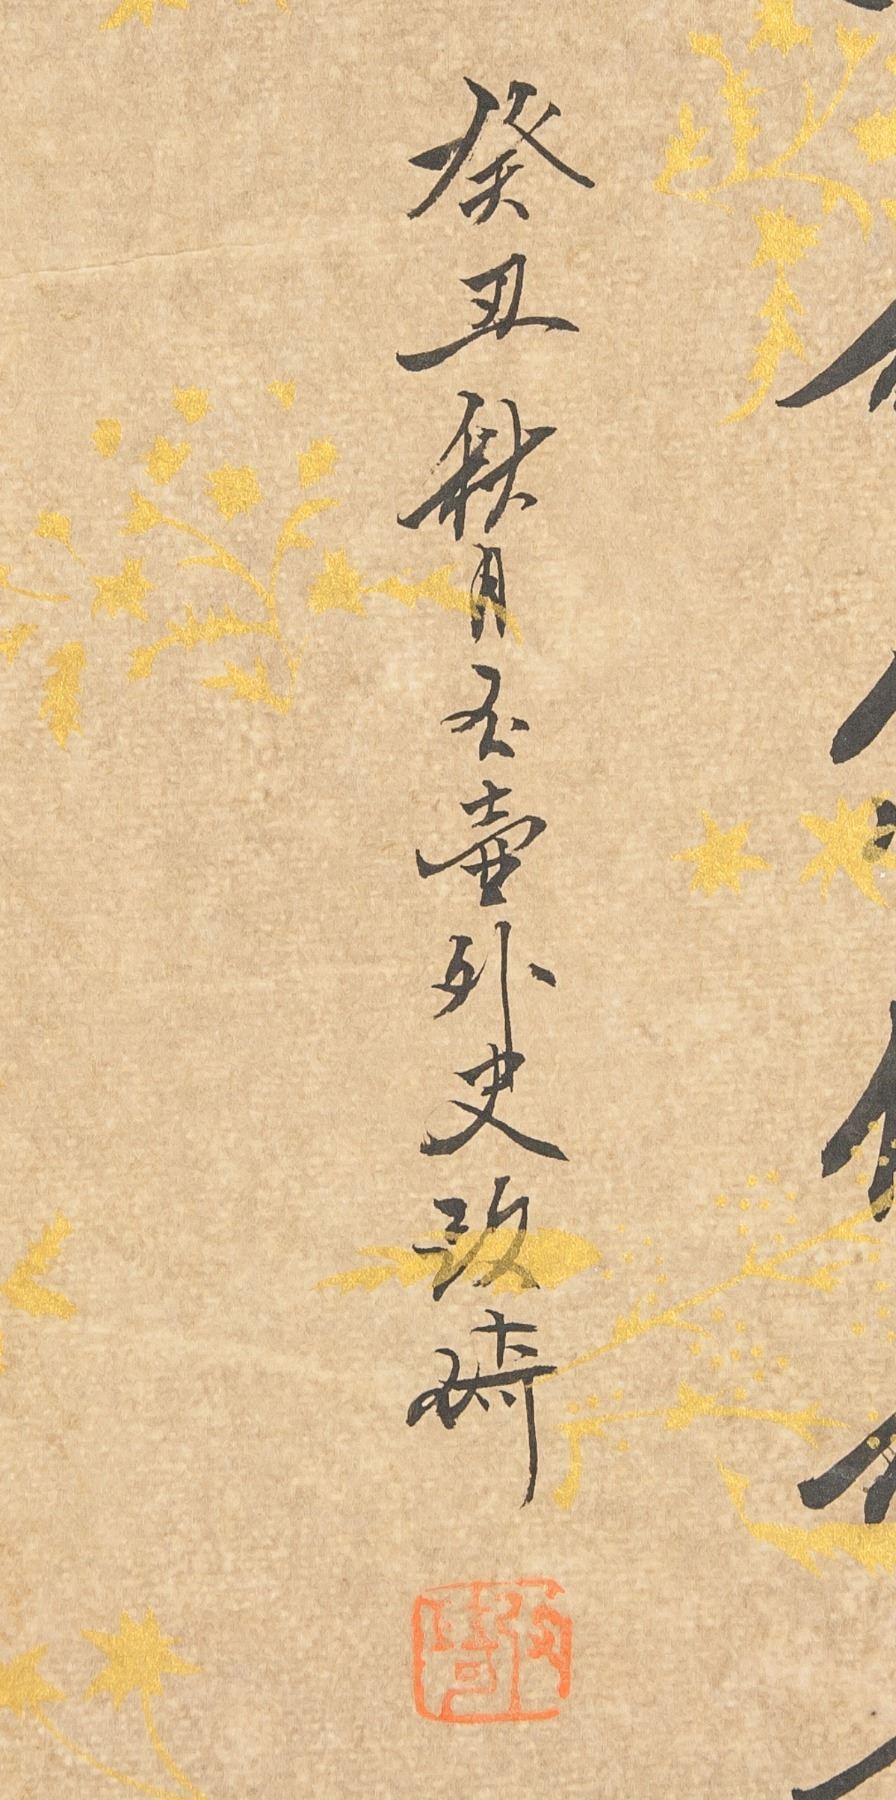 癸丑秋月玉壺外史改琦